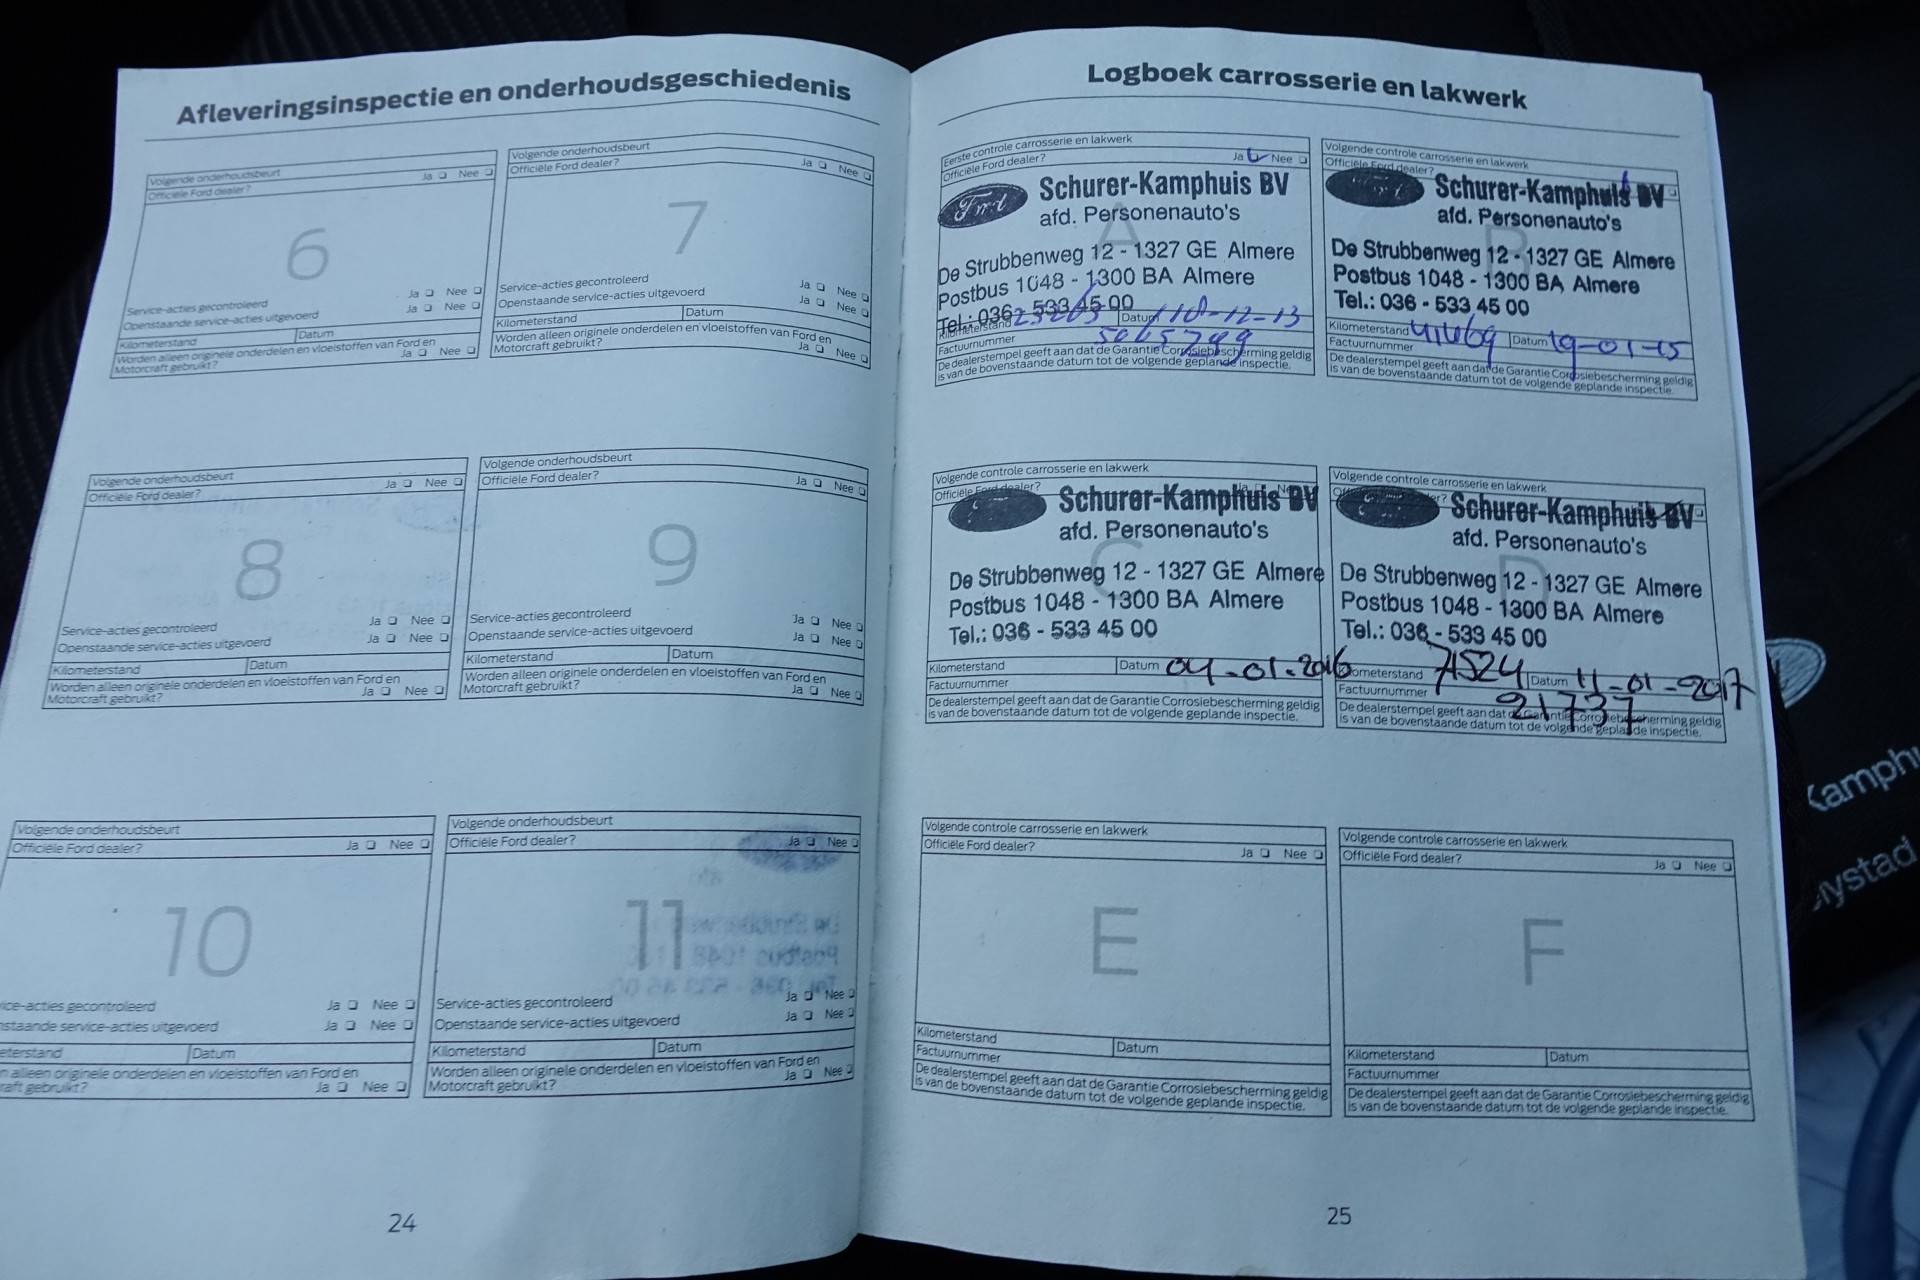 Afleveringsinspectie en onderhoudsgeschiedenis
Volgende onderhoudsbeurt
Officiële Ford dealer? Ja Nee
6
Service-acties gecontroleerd Ja Nee
Openstaande service-acties uitgevoerd Ja Nee
Kilometerstand Datum
Worden alleen originele onderdelen en vloeistoffen van Ford en
Motorcraft gebruikt? Ja Nee
Volgende onderhoudsbeurt
Officiële Ford dealer? Ja Nee
7
Service-acties gecontroleerd Ja Nee
Openstaande service-acties uitgevoerd Ja Nee
Kilometerstand Datum
Worden alleen originele onderdelen en vloeistoffen van Ford en
Motorcraft gebruikt? Ja Nee
Volgende onderhoudsbeurt
Officiële Ford dealer? Ja Nee
8
Service-acties gecontroleerd Ja Nee
Openstaande service-acties uitgevoerd Ja Nee
Kilometerstand Datum
Worden alleen originele onderdelen en vloeistoffen van Ford en
Motorcraft gebruikt? Ja Nee
Volgende onderhoudsbeurt
Officiële Ford dealer? Ja Nee
9
Service-acties gecontroleerd Ja Nee
Openstaande service-acties uitgevoerd Ja Nee
Kilometerstand Datum
Worden alleen originele onderdelen en vloeistoffen van Ford en
Motorcraft gebruikt? Ja Nee
Volgende onderhoudsbeurt
Officiële Ford dealer? Ja Nee
10
ice-acties gecontroleerd Ja Nee
nstaande service-acties uitgevoerd Ja Nee
eterstand Datum
n alleen originele onderdelen en vloeistoffen van Ford en
raft gebruikt? Ja Nee
Volgende onderhoudsbeurt
Officiële Ford dealer? Ja Nee
11
Service-acties gecontroleerd Ja Nee
Openstaande service-acties uitgevoerd Ja Nee
Kilometerstand Datum
Worden alleen originele onderdelen en vloeistoffen van Ford en
Motorcraft gebruikt? Ja Nee
24
Logboek carrosserie en lakwerk
Eerste controle carrosserie en lakwerk
Officiële Ford dealer? Ja Nee
Ford Schurer-Kamphuis BV
afd. Personenauto's
A
De Strubbenweg 12 - 1327 GE Almere
Postbus 1048 - 1300 BA Almere
Tel.: 036 - 533 45 00
Kilometerstand Datum 18-12-13
Factuurnummer 5065799
De dealerstempel geeft aan dat de Garantie Corrosiebescherming geldig
is van de bovenstaande datum tot de volgende geplande inspectie.
Volgende controle carrosserie en lakwerk
Officiële Ford dealer?
Schurer-Kamphuis BV
afd. Personenauto's
B
De Strubbenweg 12 - 1327 GE Almere
Postbus 1048 - 1300 BA Almere
Tel.: 036 - 533 45 00
Kilometerstand 41469 Datum 19-01-15
Factuurnummer
De dealerstempel geeft aan dat de Garantie Corrosiebescherming geldig
is van de bovenstaande datum tot de volgende geplande inspectie.
Volgende controle carrosserie en lakwerk
Officiële Ford dealer? Ja Nee
Schurer-Kamphuis BV
afd. Personenauto's
C
De Strubbenweg 12 - 1327 GE Almere
Postbus 1048 - 1300 BA Almere
Tel.: 036 - 533 45 00
Kilometerstand Datum 04-01-2016
Factuurnummer
De dealerstempel geeft aan dat de Garantie Corrosiebescherming geldig
is van de bovenstaande datum tot de volgende geplande inspectie.
Volgende controle carrosserie en lakwerk
Schurer-Kamphuis BV
afd. Personenauto's
D
De Strubbenweg 12 - 1327 GE Almere
Postbus 1048 - 1300 BA Almere
Tel.: 036 - 533 45 00
Kilometerstand 71524 Datum 11-01-2017
Factuurnummer 21737
De dealerstempel geeft aan dat de Garantie Corrosiebescherming geldig
is van de bovenstaande datum tot de volgende geplande inspectie.
Volgende controle carrosserie en lakwerk
Officiële Ford dealer? Ja Nee
E
Kilometerstand Datum
Factuurnummer
De dealerstempel geeft aan dat de Garantie Corrosiebescherming geldig
is van de bovenstaande datum tot de volgende geplande inspectie.
Volgende controle carrosserie en lakwerk
Officiële Ford dealer? Ja Nee
F
Kilometerstand Datum
Factuurnummer
De dealerstempel geeft aan dat de Garantie Corrosiebescherming geldig
is van de bovenstaande datum tot de volgende geplande inspectie.
25
Kamphu
lystad